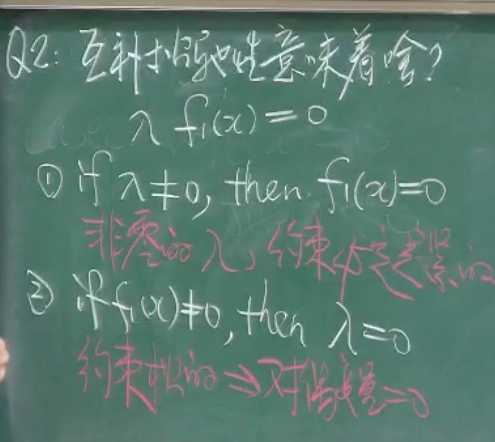 Q2: 互补松弛性意味着啥?
λ f₁(x)=0
① if λ≠0, then f₁(x)=0
非零的 λ, 约束必定是紧的
② if f₁(x)≠0, then λ=0
约束松的 ⇒ 对偶变量=0